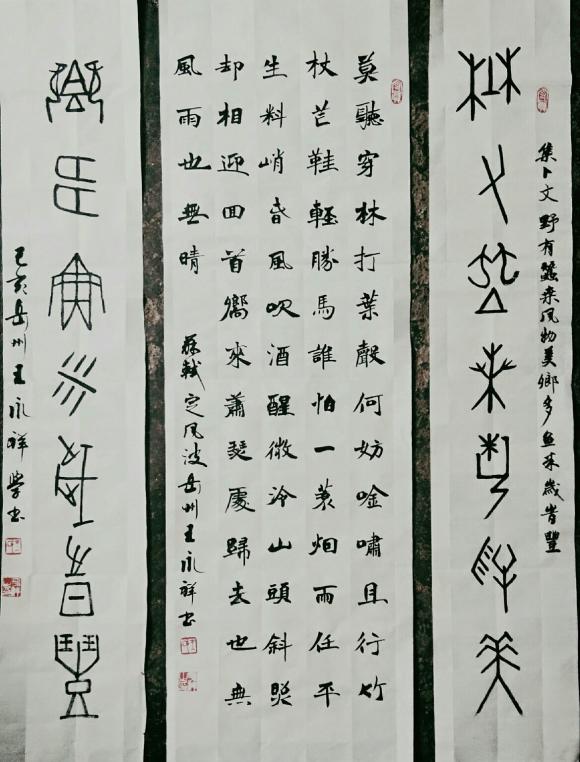 集卜文 野有蠶桑风物美鄉多鱼米歲皆豐
野有蠶桑風物美
莫聽穿林打葉聲何妨唫嘯且行竹
杖芒鞋輕勝馬誰怕一蓑烟雨任平
生料峭春風吹酒醒微冷山頭斜照
却相迎回首嚮來蕭瑟處歸去也無
風雨也無晴
蘇軾定风波岳州王永祥书
鄉多魚米歲皆豐
己亥岳州王永祥學书